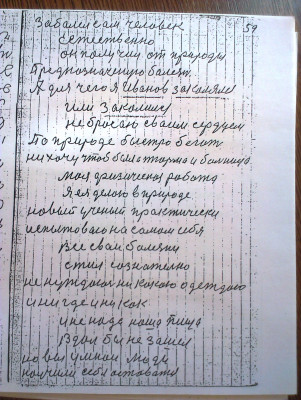 59
Заболел сам человек
естественно
он получил от природы
Предназначенную болезнь
А для чего я Иванов закалялся
или Закалился
не бросаю своим сердцем
По природе быстро бегать
ни хочу чтоб была тюрьма и больница
моя физическая работа
Я ея делаю в природе
новый ученый практически
испытываю на самом себя
Все свои болезни
стал сознательно
не нуждаюсь никакою одеждою
и нигде и никак
и не надо наша пища
В дом бы не зашел
новые умной люди
научили себя оставаться